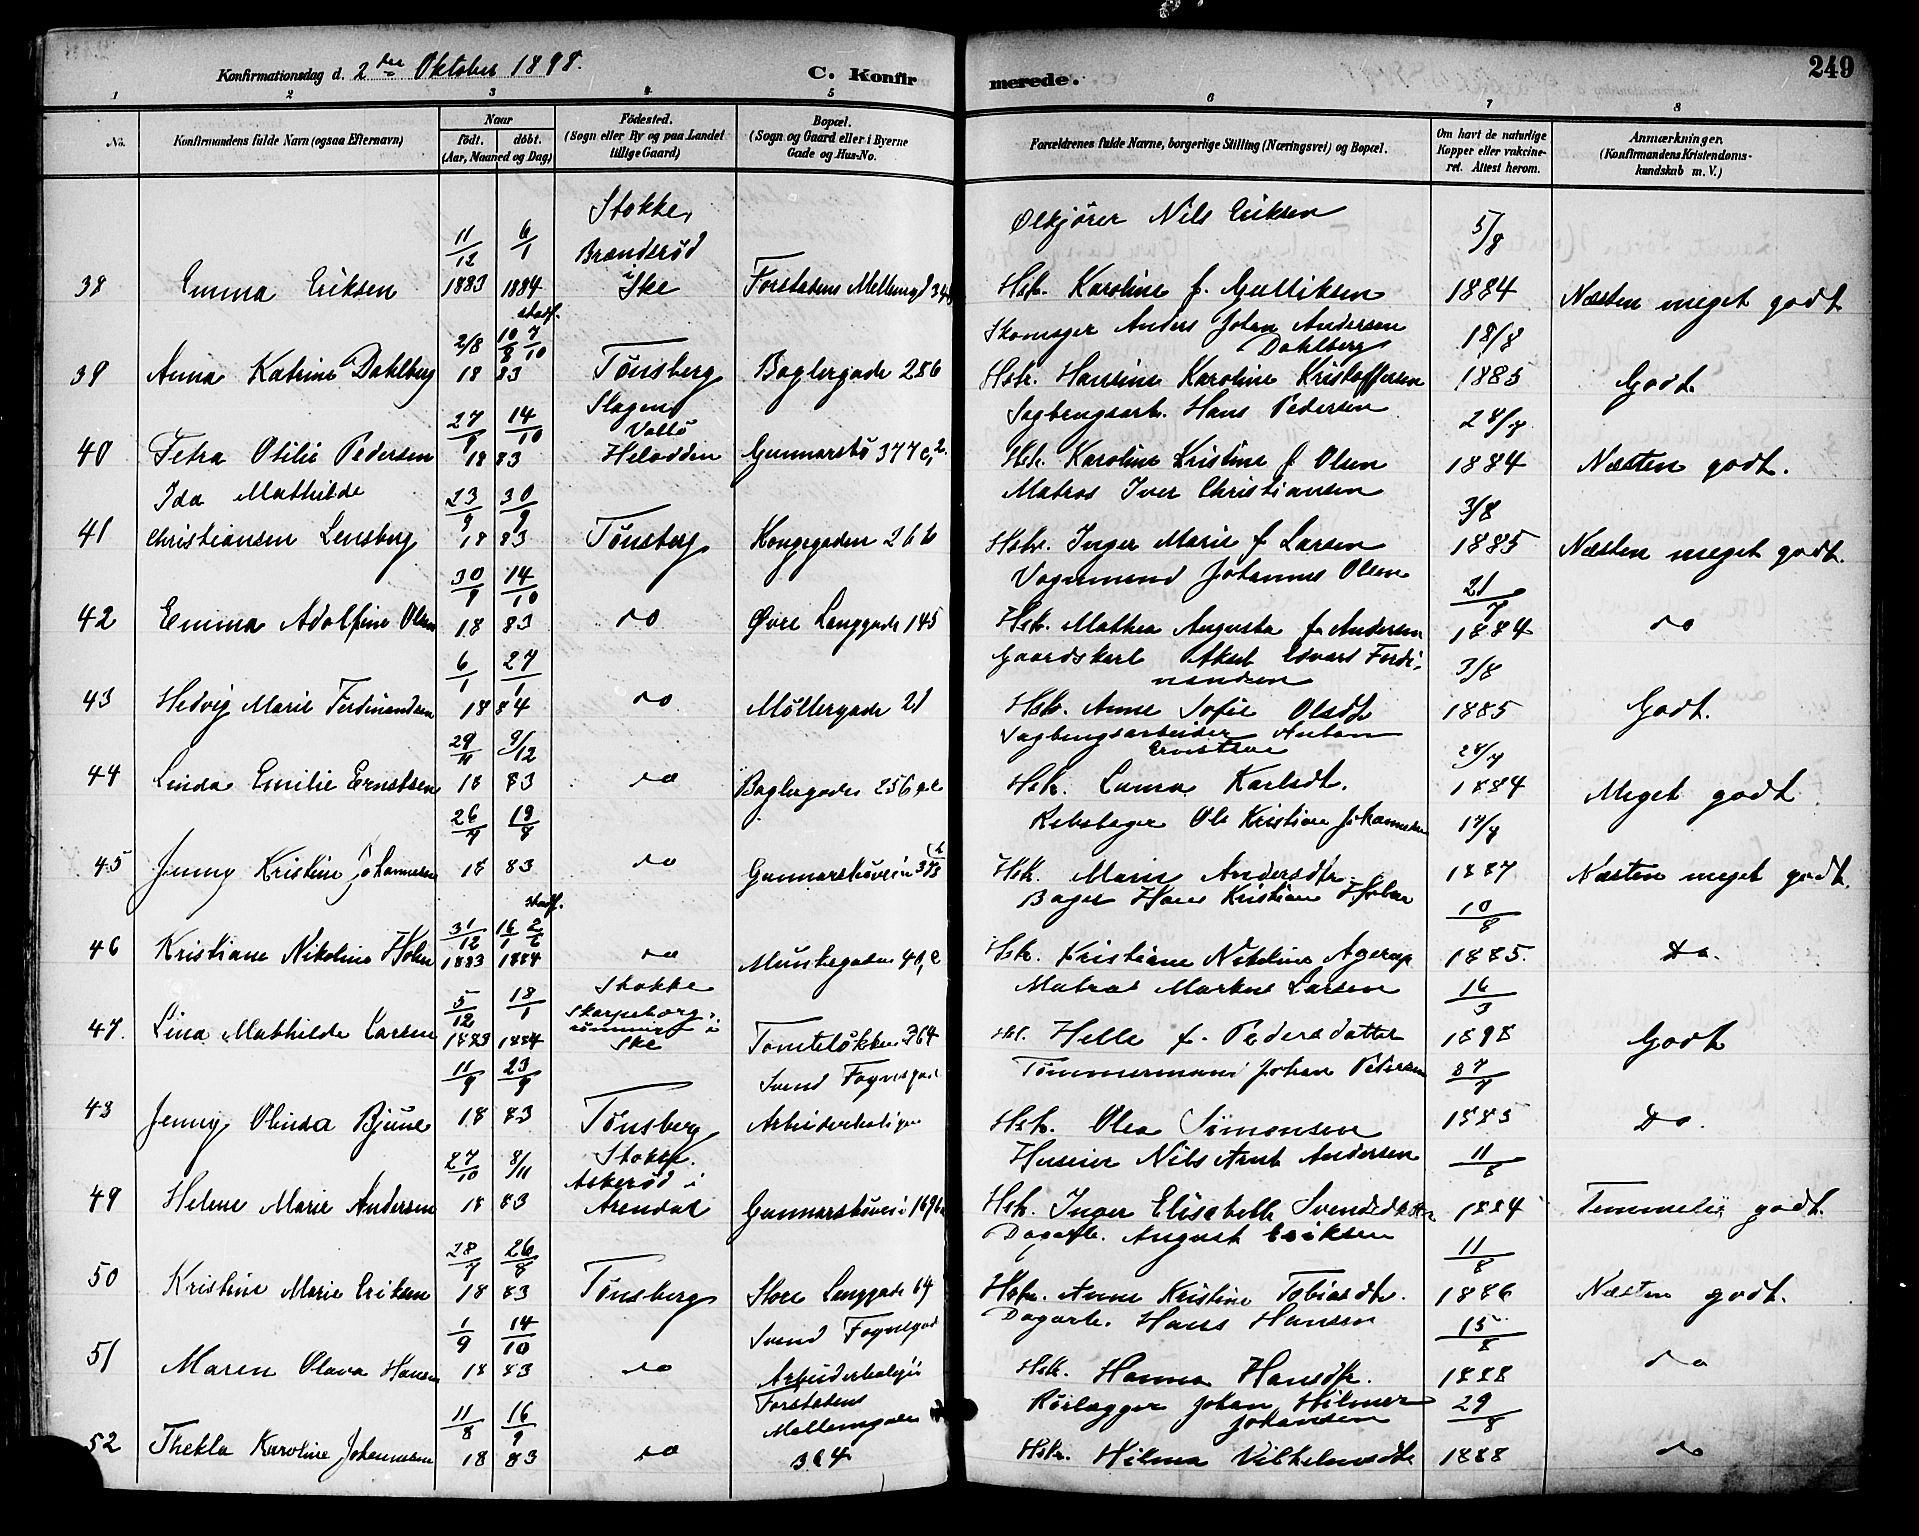 249
Konfirmationsdag d. 2den Oktober 1898. C. Konfirmerede.
1 2 3 4 5 6 7 8
No. Konfirmandens fulde Navn (ogsaa Efternavn) Naar født. døbt. (Aar, Maaned og Dag) Fødested. (Sogn eller By og paa Landet tillige Gaard) Bopæl. (Sogn og Gaard eller i Byerne Gade og Hus-No. Forældrenes fulde Navne, borgerlige Stilling (Næringsvei) og Bopæl. Om havt de naturlige Kopper eller vakcineret. Attest herom. Anmærkninger. (Konfirmandens Kristendomskundskab m. V.)
Stokke, Ølkjører Nils Eriksen 5/8
11/12 6/1 Brænderød i
38 Emma Eriksen 1883 1884 Ske Forstadens Hstr. Karoline f. Gulliksen 1884 Næsten meget godt
2/8 10/8 7/10 Skomager Anders Johan Andersen Dahlberg 18/8
39 Anna Katrine Dahlberg 18 83 Tønsberg Baglergade 286 Hstr. Hansine Karoline Kristoffersen 1885 Godt.
27/9 14/10 Slagen Vallø Sagbrugsarb. Hans Pedersen 28/7
40 Petra Otilie Pedersen 18 83 Gunnarsbø 377 c,2. Hstr. Karoline Kristine f. Olsen 1884 Næsten godt.
Ida Mathilde 23/9 30/9 Matros Iver Christiansen 3/8
41 Christiansen Lensberg 18 83 Tønsberg Kongegaden 26 b Hstr. Inger Marie f. Larsen 1885 Næsten meget godt.
30/9 14/10 Vognmand Johannes Olsen 21/7
42 Emma Adolfine Olsen 18 83 do Øvre Langgade 145 Hstr. Mathea Augusta f. Andersen 1884 do
6/1 27/1 Gaardskarl Edvart Ferdinandsen 3/8
43 Hedvig Marie Ferdinandsen 18 84 do Møllergade 21 Hstr. Anne Sofie Olsdtr 1885 Godt.
29/11 9/12 Sagbrugsarbeider Anton Ernstsen 28/7
44 Linda Emilie Ernstsen 18 83 do Baglergade 256 Hstr. Karlsdt. 1884 Meget godt
26/7 19/8 Rebslager Ole Kristian Johannesen 17/7
45 Jenny Kristine Johannesen 18 83 do Gunnarsbøvein Hstr. Marie Andersdtr. 1887 Næsten meget godt.
31/12 16/1 2/6 Bager Hans Kristian Holm 10/8
46 Kristiane Nikoline Holm 1883 1884 do Munkegaden 41, Hstr. Kristiane Nikoline Agerup 1885. Do.
5/12 18/1 Stokke Matros Markus Larsen 16/3
47. Lina Mathilde Larsen 1883 1884 i Ske Tomteløkken 364 Hst. Helle f. Pedersdatter 1898 Godt
11/9 23/9 Svend Foynsgade Tømmermand Johan Pedersen 27/7
48 Jenny Olinda Bjune 18 83 Tønsberg Arbeiderbolign Hstr. Olea Simonsen 1885 Do.
27/10 8/11 Stokke. Askerød i Huseier Nils Arnt Andersen 11/8
49 Helene Marie Andersen 18 83 Arendal Gunnarsbøvei Hstr. Inger Elisabeth Svendsdatter 1884 Temmelig godt.
28/7 26/8 Dagarb. August Eriksen 11/8
50 Kristine Marie Eriksen 18 83 Tønsberg Store Langgade 69 Hstr. Anne Kristine Tobiasdtr. 1886 Næsten godt.
1/9 14/10 Svend Foynsgade Dagarb. Hans Hansen 15/8
51 Maren Olava Hansen 18 83 do Arbeiderbolign Hstr. Hanna Hansdtr. 1888 do
11/8 16/9 Forstadens Møllergaden Rørlægger Johan Hilmer Johansen 29/8
52 Thekla Karoline Johannesen 18 83 do 364 Hstr. Hilma Vilhelmsdtr 1888 do